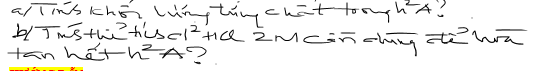 a/ Tính khối lượng từng chất trong h² A?
b/ Tính thể tích cl² + HCl 2M cần dùng để hoà
tan hết h² A?